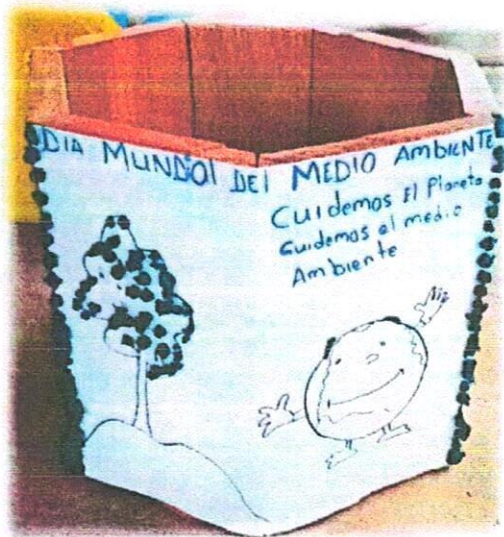 DIA MUNDIAl DEl MEDIO AMBIENTE
Cuidemos El Planeta
Cuidemos el medio
Ambiente